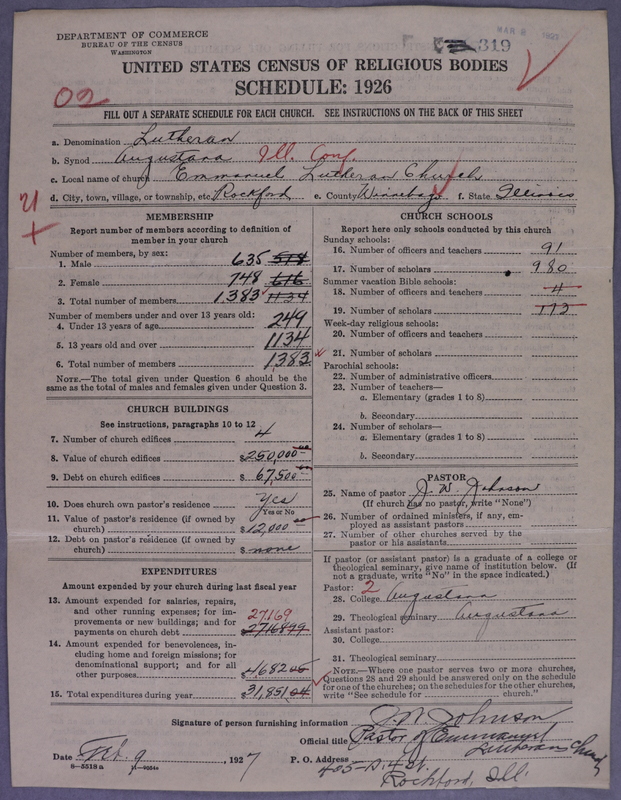 DEPARTMENT OF COMMERCE
BUREAU OF THE CENSUS
WASHINGTON
MAR 8 1927
319
UNITED STATES CENSUS OF RELIGIOUS BODIES
SCHEDULE: 1926
02
FILL OUT A SEPARATE SCHEDULE FOR EACH CHURCH. SEE INSTRUCTIONS ON THE BACK OF THIS SHEET
a. Denomination Lutheran
b. Synod Augustana Ill. Conf.
c. Local name of church Emmanuel Lutheran Church
d. City, town, village, or township, etc. Rockford e. County Winnebago f. State Illinois
21
MEMBERSHIP
Report number of members according to definition of
member in your church
Number of members, by sex:
1. Male 635 518
2. Female 748 616
3. Total number of members 1,383 1134
Number of members under and over 13 years old:
4. Under 13 years of age 249
5. 13 years old and over 1134
6. Total number of members 1,383
NOTE.—The total given under Question 6 should be the
same as the total of males and females given under Question 3.
CHURCH BUILDINGS
See instructions, paragraphs 10 to 12
7. Number of church edifices 4
8. Value of church edifices $250,000
9. Debt on church edifices $67,500
10. Does church own pastor's residence Yes
Yes or No
11. Value of pastor's residence (if owned by
church) $12,000
12. Debt on pastor's residence (if owned by
church) $none
EXPENDITURES
Amount expended by your church during last fiscal year
13. Amount expended for salaries, repairs,
and other running expenses; for im-
provements or new buildings; and for 27169
payments on church debt $2716899
14. Amount expended for benevolences, in-
cluding home and foreign missions; for
denominational support; and for all
other purposes $468205
15. Total expenditures during year $31,85104
CHURCH SCHOOLS
Report here only schools conducted by this church
Sunday schools:
16. Number of officers and teachers 91
17. Number of scholars 980
Summer vacation Bible schools:
18. Number of officers and teachers 4
19. Number of scholars 173
Week-day religious schools:
20. Number of officers and teachers
21. Number of scholars
Parochial schools:
22. Number of administrative officers
23. Number of teachers—
a. Elementary (grades 1 to 8)
b. Secondary
24. Number of scholars—
a. Elementary (grades 1 to 8)
b. Secondary
PASTOR
25. Name of pastor J. W. Johnson
(If church has no pastor, write "None")
26. Number of ordained ministers, if any, em-
ployed as assistant pastors
27. Number of other churches served by the
pastor or his assistants
If pastor (or assistant pastor) is a graduate of a college or
theological seminary, give name of institution below. (If
not a graduate, write "No" in the space indicated.)
Pastor: 2
28. College Augustana
29. Theological seminary Augustana
Assistant pastor:
30. College
31. Theological seminary
NOTE.—Where one pastor serves two or more churches,
Questions 28 and 29 should be answered only on the schedule
for one of the churches; on the schedules for the other churches,
write "See schedule for church."
Signature of person furnishing information J. W. Johnson
Official title Pastor of Emmanuel
Lutheran Church
Date Feb. 9, 1927 P. O. Address
Rockford, Ill.
8—5518a